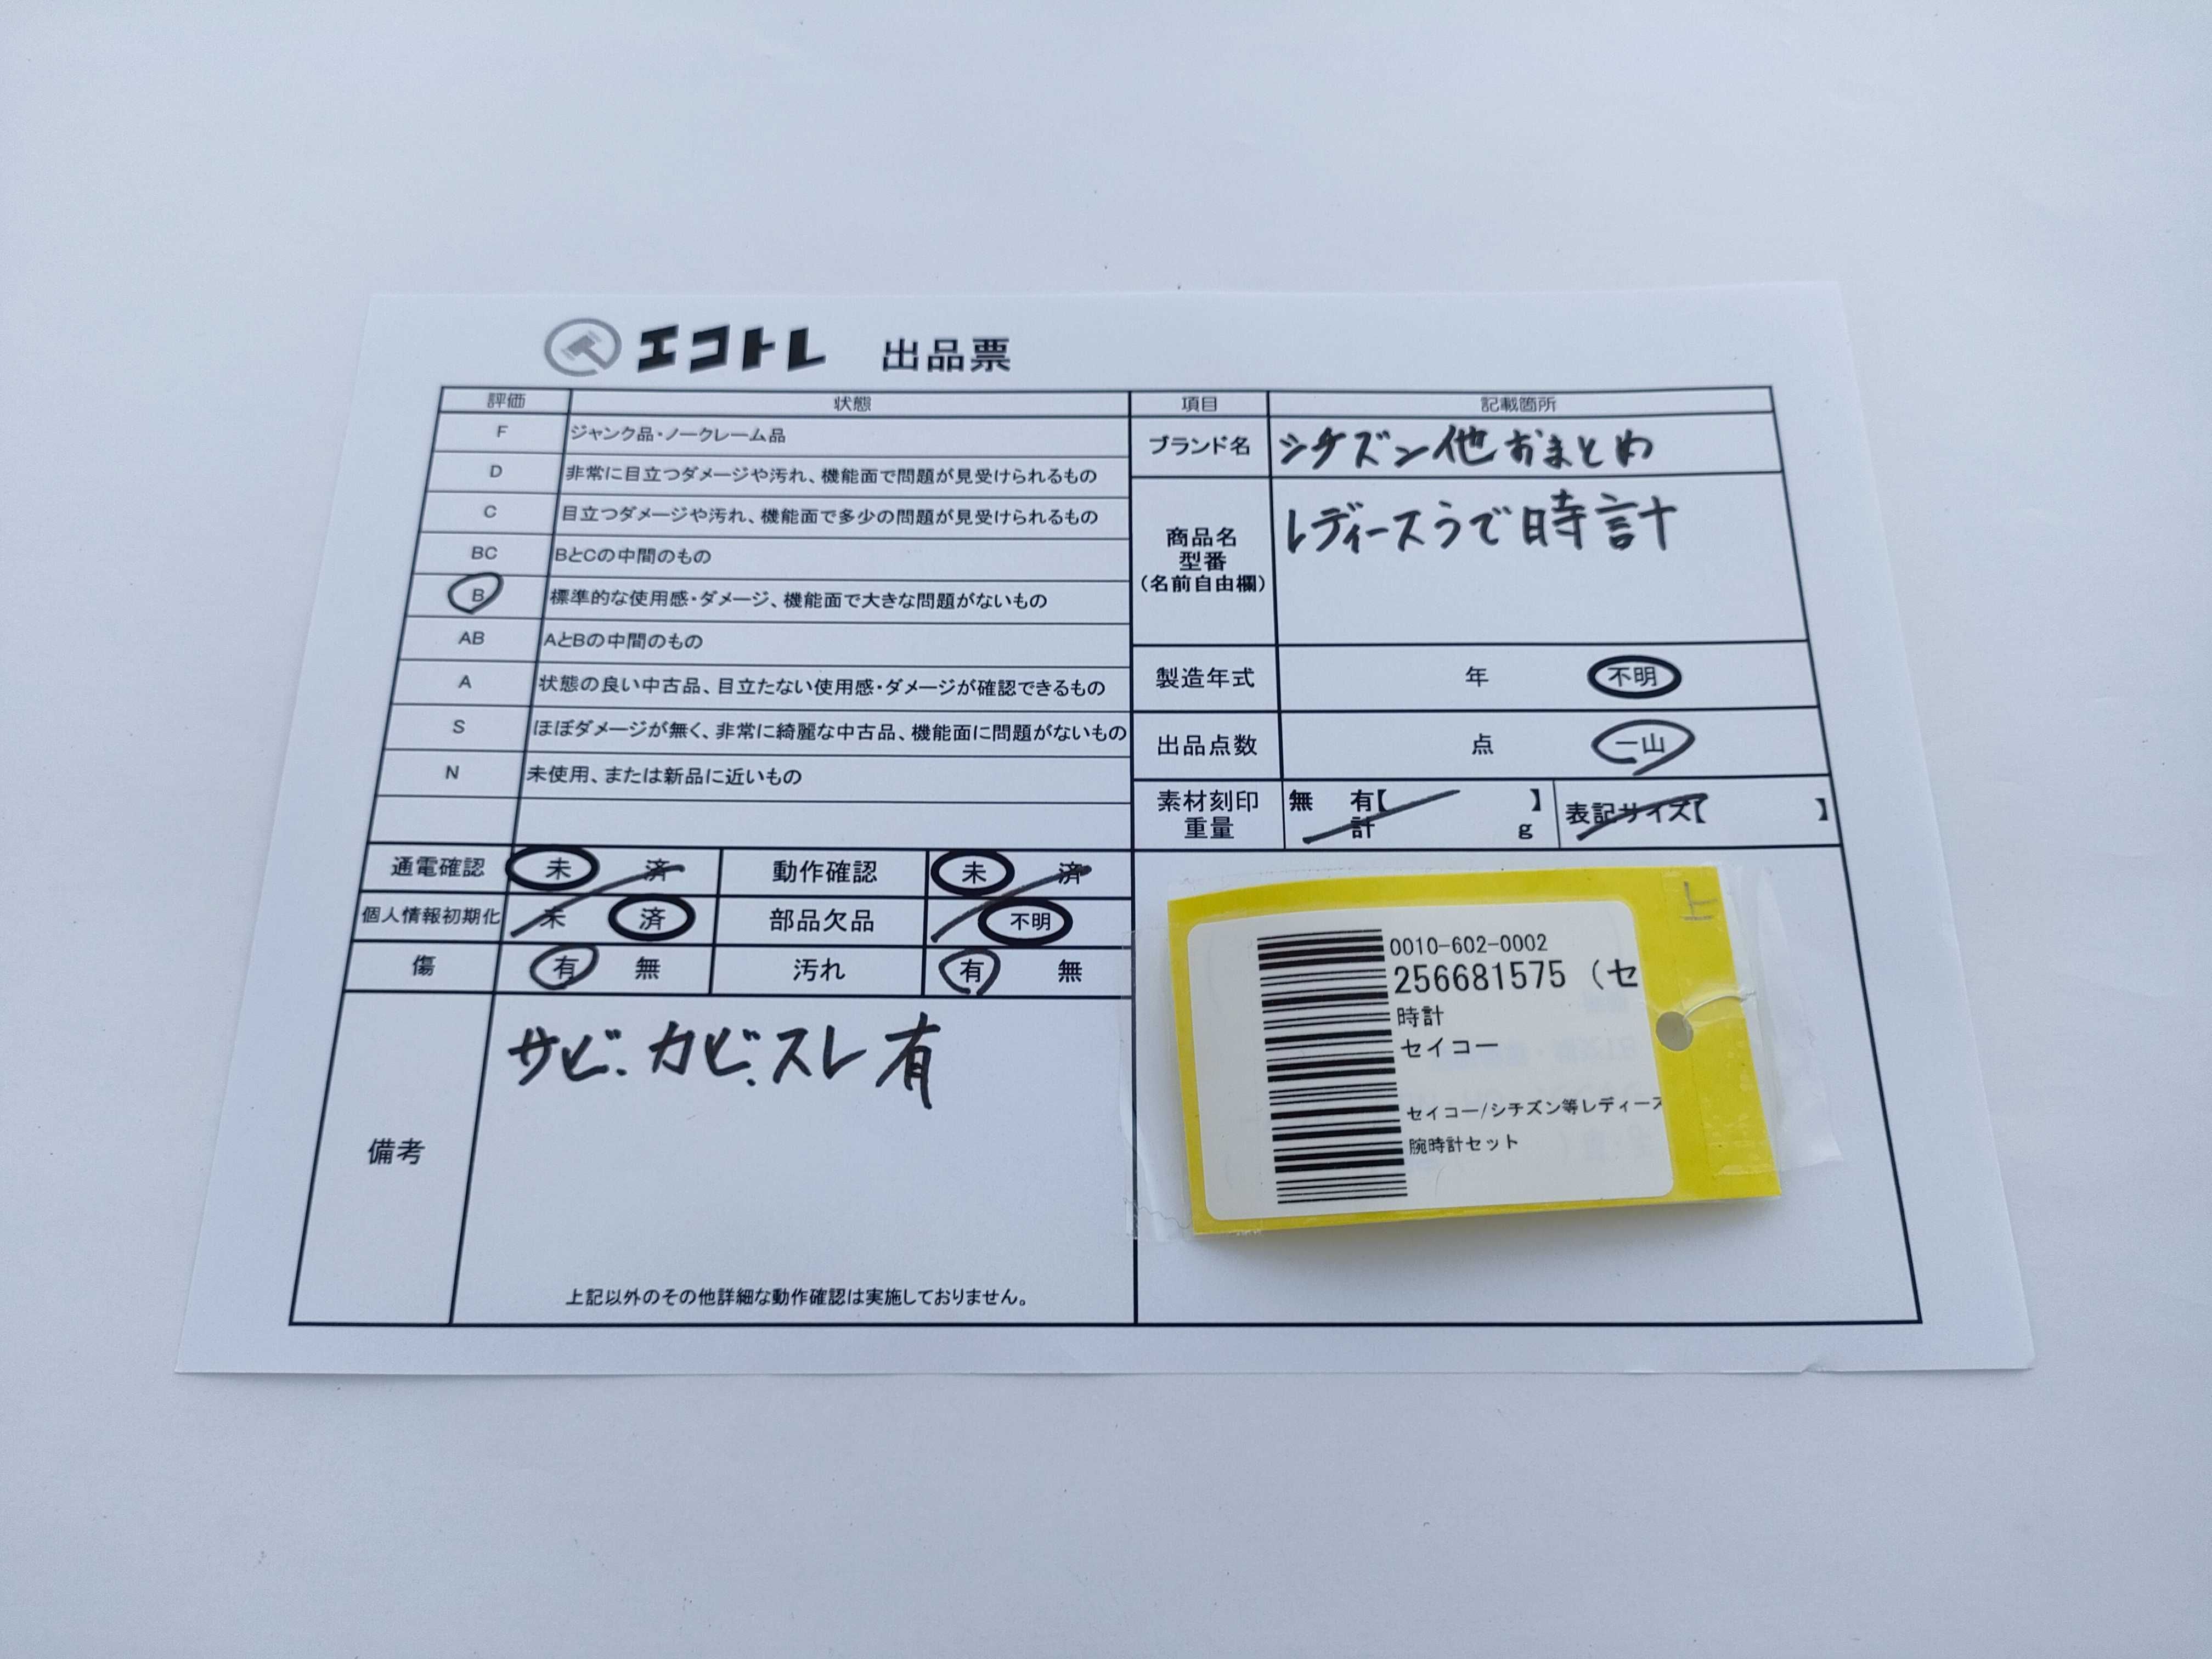 エコトレ 出品票
評価 状態 項目 記載箇所
F ジャンク品・ノークレーム品
D 非常に目立つダメージや汚れ、機能面で問題が見受けられるもの
C 目立つダメージや汚れ、機能面で多少の問題が見受けられるもの
BC BとCの中間のもの
B 標準的な使用感・ダメージ、機能面で大きな問題がないもの
AB AとBの中間のもの
A 状態の良い中古品、目立たない使用感・ダメージが確認できるもの
S ほぼダメージが無く、非常に綺麗な中古品、機能面に問題がないもの
N 未使用、または新品に近いもの
ブランド名 シチズン他おまとめ
商品名
型番
(名前自由欄)
レディースうで時計
製造年式 年 不明
出品点数 点 一山
素材刻印
重量
無 有【 】
計 g
表記サイズ【 】
通電確認 未 済 動作確認 未 済
個人情報初期化 未 済 部品欠品 不明
傷 有 無 汚れ 有 無
備考
サビ.カビ.スレ有
上記以外のその他詳細な動作確認は実施しておりません。
上
0010-602-0002
256681575 (セ
時計
セイコー
セイコー/シチズン等レディース
腕時計セット